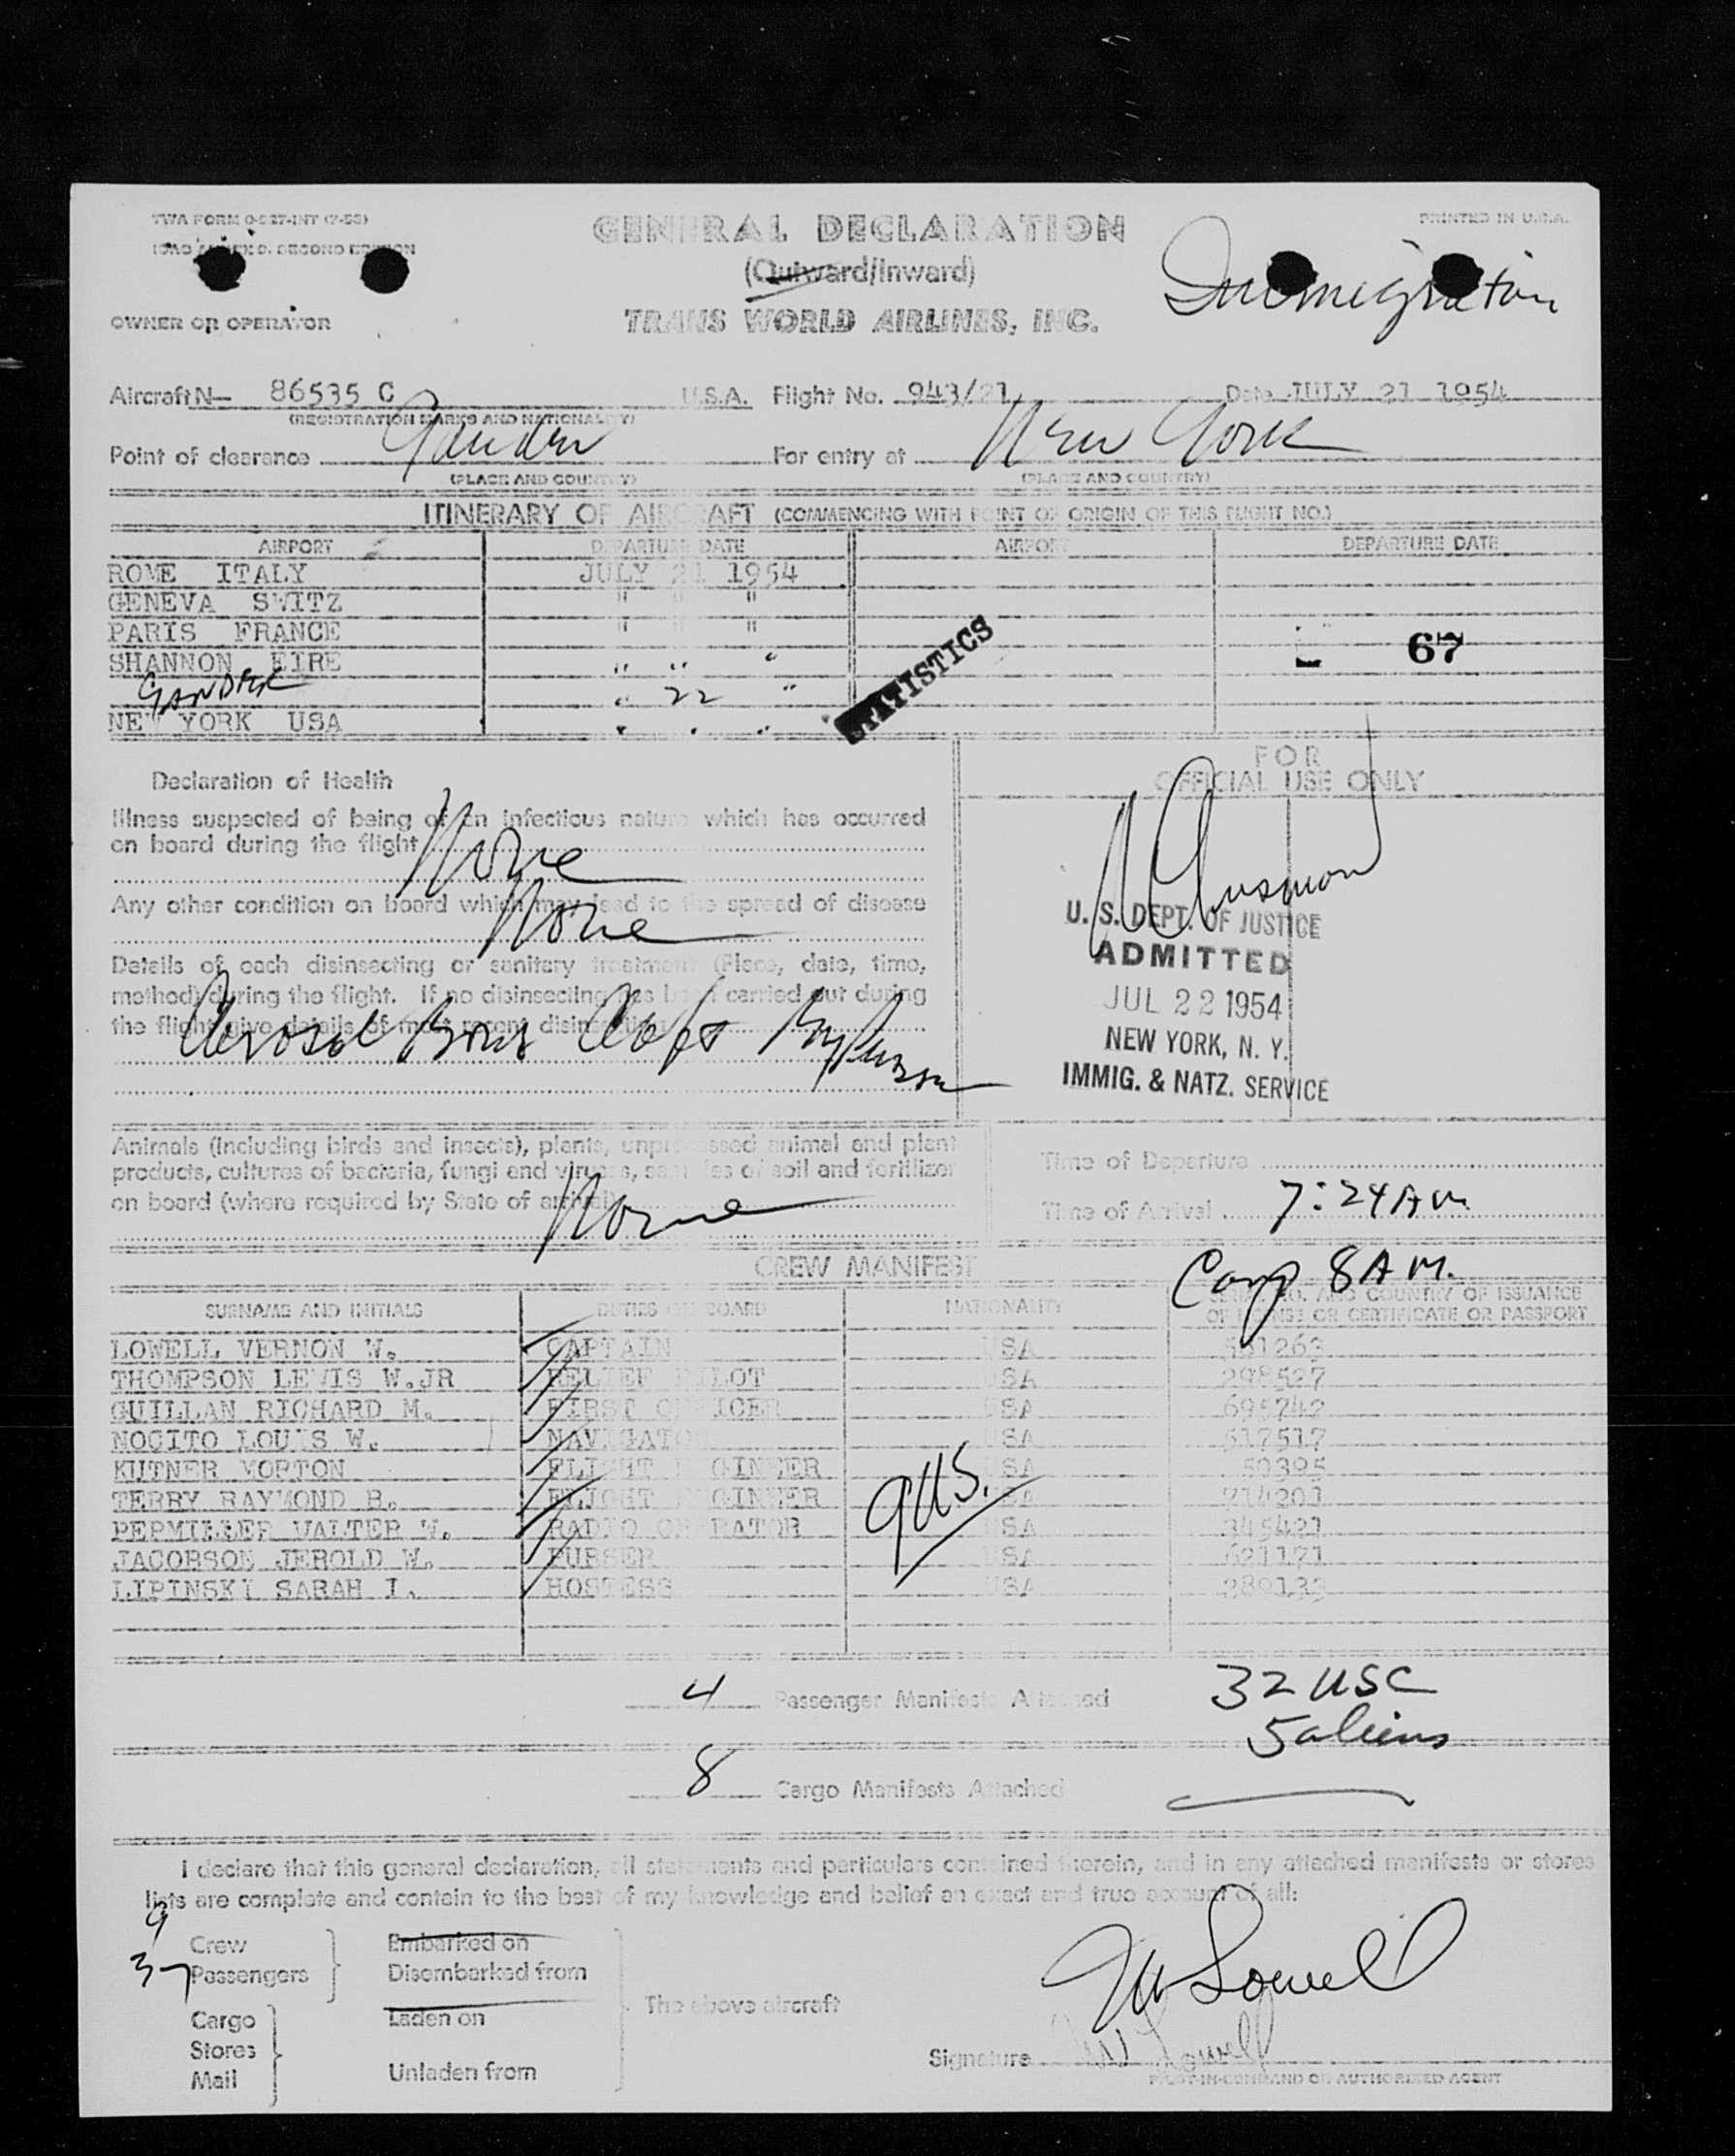 TWA FORM 0-527-INT (7-53)
GENERAL DECLARATION
PRINTED IN U.S.A.
ICAO ANNEX 9, SECOND EDITION
(Outward/Inward)
Immigration
OWNER OR OPERATOR
TRANS WORLD AIRLINES, INC.
Aircraft N— 86535 C U.S.A. Flight No. 943/21 Date JULY 21 1954
(REGISTRATION MARKS AND NATIONALITY)
Point of clearance Gander For entry at New York
(PLACE AND COUNTRY) (PLACE AND COUNTRY)
ITINERARY OF AIRCRAFT (COMMENCING WITH POINT OF ORIGIN OF THIS FLIGHT NO.)
AIRPORT DEPARTURE DATE AIRPORT DEPARTURE DATE
ROME ITALY JULY 21 1954
GENEVA SWITZ " " "
PARIS FRANCE " " "
STATISTICS
67
SHANNON EIRE " " "
GANDER " 22 "
NEW YORK USA " " "
FOR
OFFICIAL USE ONLY
Declaration of Health
Illness suspected of being of an infectious nature which has occurred
on board during the flight None
Any other condition on board which may lead to the spread of disease
None
Details of each disinsecting or sanitary treatment (Place, date, time,
method) during the flight. If no disinsecting has been carried out during
the flight give details of most recent disinsecting
Aerosol Bomb
U. S. DEPT. OF JUSTICE
ADMITTED
JUL 22 1954
NEW YORK, N. Y.
IMMIG. & NATZ. SERVICE
Animals (including birds and insects), plants, unprocessed animal and plant
products, cultures of bacteria, fungi and viruses, samples of soil and fertilizer
on board (where required by State of arrival) None
Time of Departure
Time of Arrival 7:24 AM
CREW MANIFEST
8 AM.
SURNAME AND INITIALS DUTIES ON BOARD NATIONALITY NO. AND COUNTRY OF ISSUANCE
OF LICENSE OR CERTIFICATE OR PASSPORT
LOWELL VERNON W. CAPTAIN USA
THOMPSON LEWIS W.JR RELIEF PILOT USA 298527
GUILLAN RICHARD M. FIRST OFFICER USA 695742
NOCITO LOUIS W. NAVIGATOR USA 517517
KUTNER MORTON FLIGHT ENGINEER USA 50395
TERRY RAYMOND B. FLIGHT ENGINEER USA 214201
PERMILLER WALTER W. RADIO OPERATOR USA 345421
JACOBSON JEROLD W. PURSER USA 621121
LIPINSKI SARAH I. HOSTESS USA 280133
9 US.
4 Passenger Manifests Attached
32 USC
5 aliens
8 Cargo Manifests Attached
I declare that this general declaration, all statements and particulars contained therein, and in any attached manifests or stores
lists are complete and contain to the best of my knowledge and belief an exact and true account of all:
9 Crew Embarked on
37 Passengers Disembarked from
The above aircraft
Cargo Laden on
Stores
Mail Unladen from
Signature VW Lowell
PILOT-IN-COMMAND OR AUTHORIZED AGENT